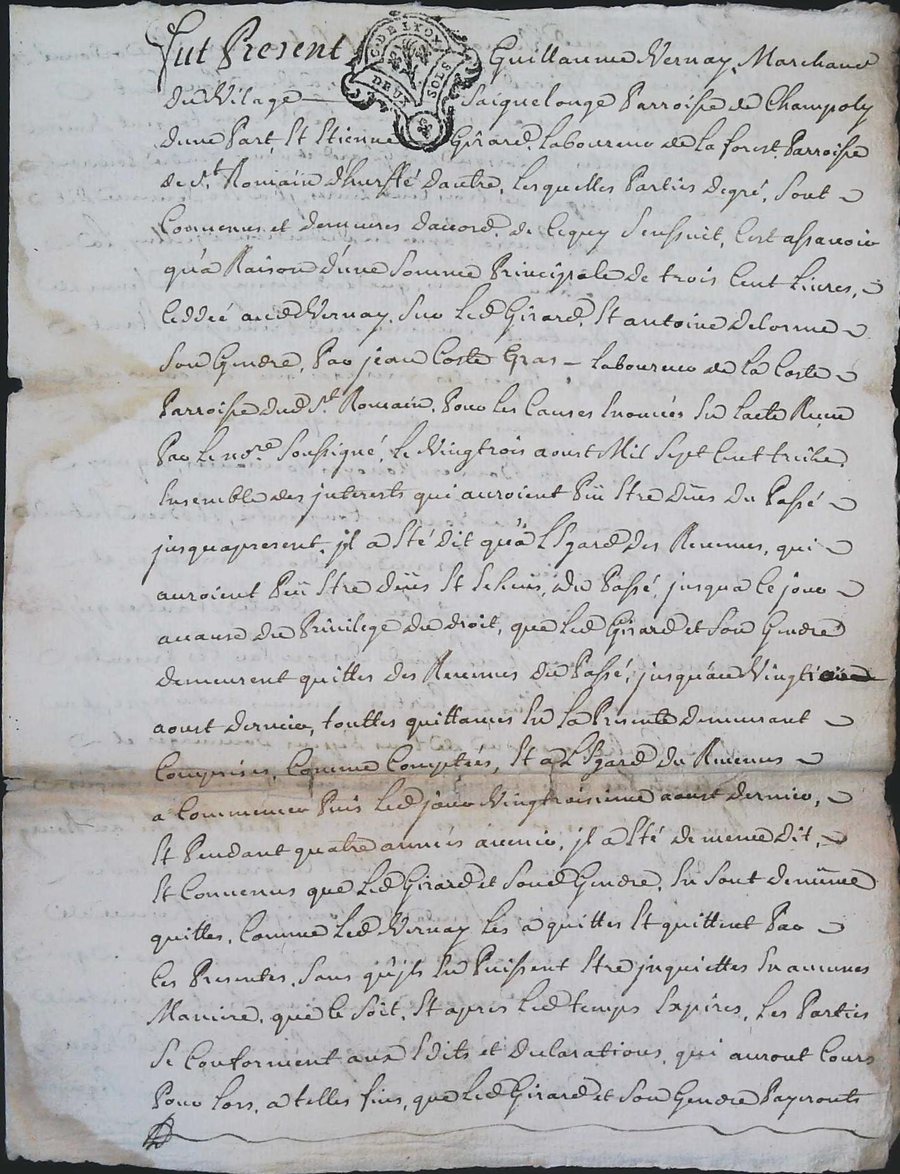 Fut Present Guillaume Vernay, Marchand
G. DE LYON
DEUX SOLS
du Vilage Saiquelonge Parroisse de Champoly
dune Part, Et Etienne Girard, laboureur de la forest, Parroisse
de St. Romain d'hurffé dautre, lesquelles Parties degré, Sont
Convenus et demeures daccord, de Cequy Sensuit, Cest assavoir
qu'a Raison d'une Somme Principale de trois Cent Livres,
Ceddéé aud Vernay, Sur Led Girard, Et antoine delorme
Son Gendre, Par jean Coste Gras - laboureur de la Coste
Parroisse dud St. Romain, Pour les Causes Enoncés En lacte Reçu
Par le nore. Soussigné, le Vingtrois aoust Mil Sept Cent treize
Ensemble des jnterests qui auroient Pëu Etre düs du Passé
jusquapresent, jl a Eté dit qu'a LEgard des Revenus, qui
auroient Pëu Etre düs Et Echeus, du Passé, jusqua Ce jour
acause du Privilege du droit, que Led Girard et Son Gendre
demeurent quittes des Revenus du Passé, jusquau
aoust dernier, touttes quittances En la Presente demeurant
Comprises, Comme Comptées, Et a LEgard du Revenus
a Commencer Puis Led jour Vingtroisieme aoust dernier,
Et Pendant quatre années avenir, jl a Eté de meme dit,
Et Convenus que Led Girard et Soud Gendre, En Sont demeure
quittes, Comme Led Vernay les a quittes Et quittent Par
Ces Presentes, Sans qu'jls En Puissent Etre jnquiettes En aucunes
Maniere, que Ce Soit, Et apres Led temps Expires, Les Parties
Se Conforment aux Edits et declarations, qui auront Cours
Pour lors, a telles fins, que Led Girard et Son Gendre Payeronts